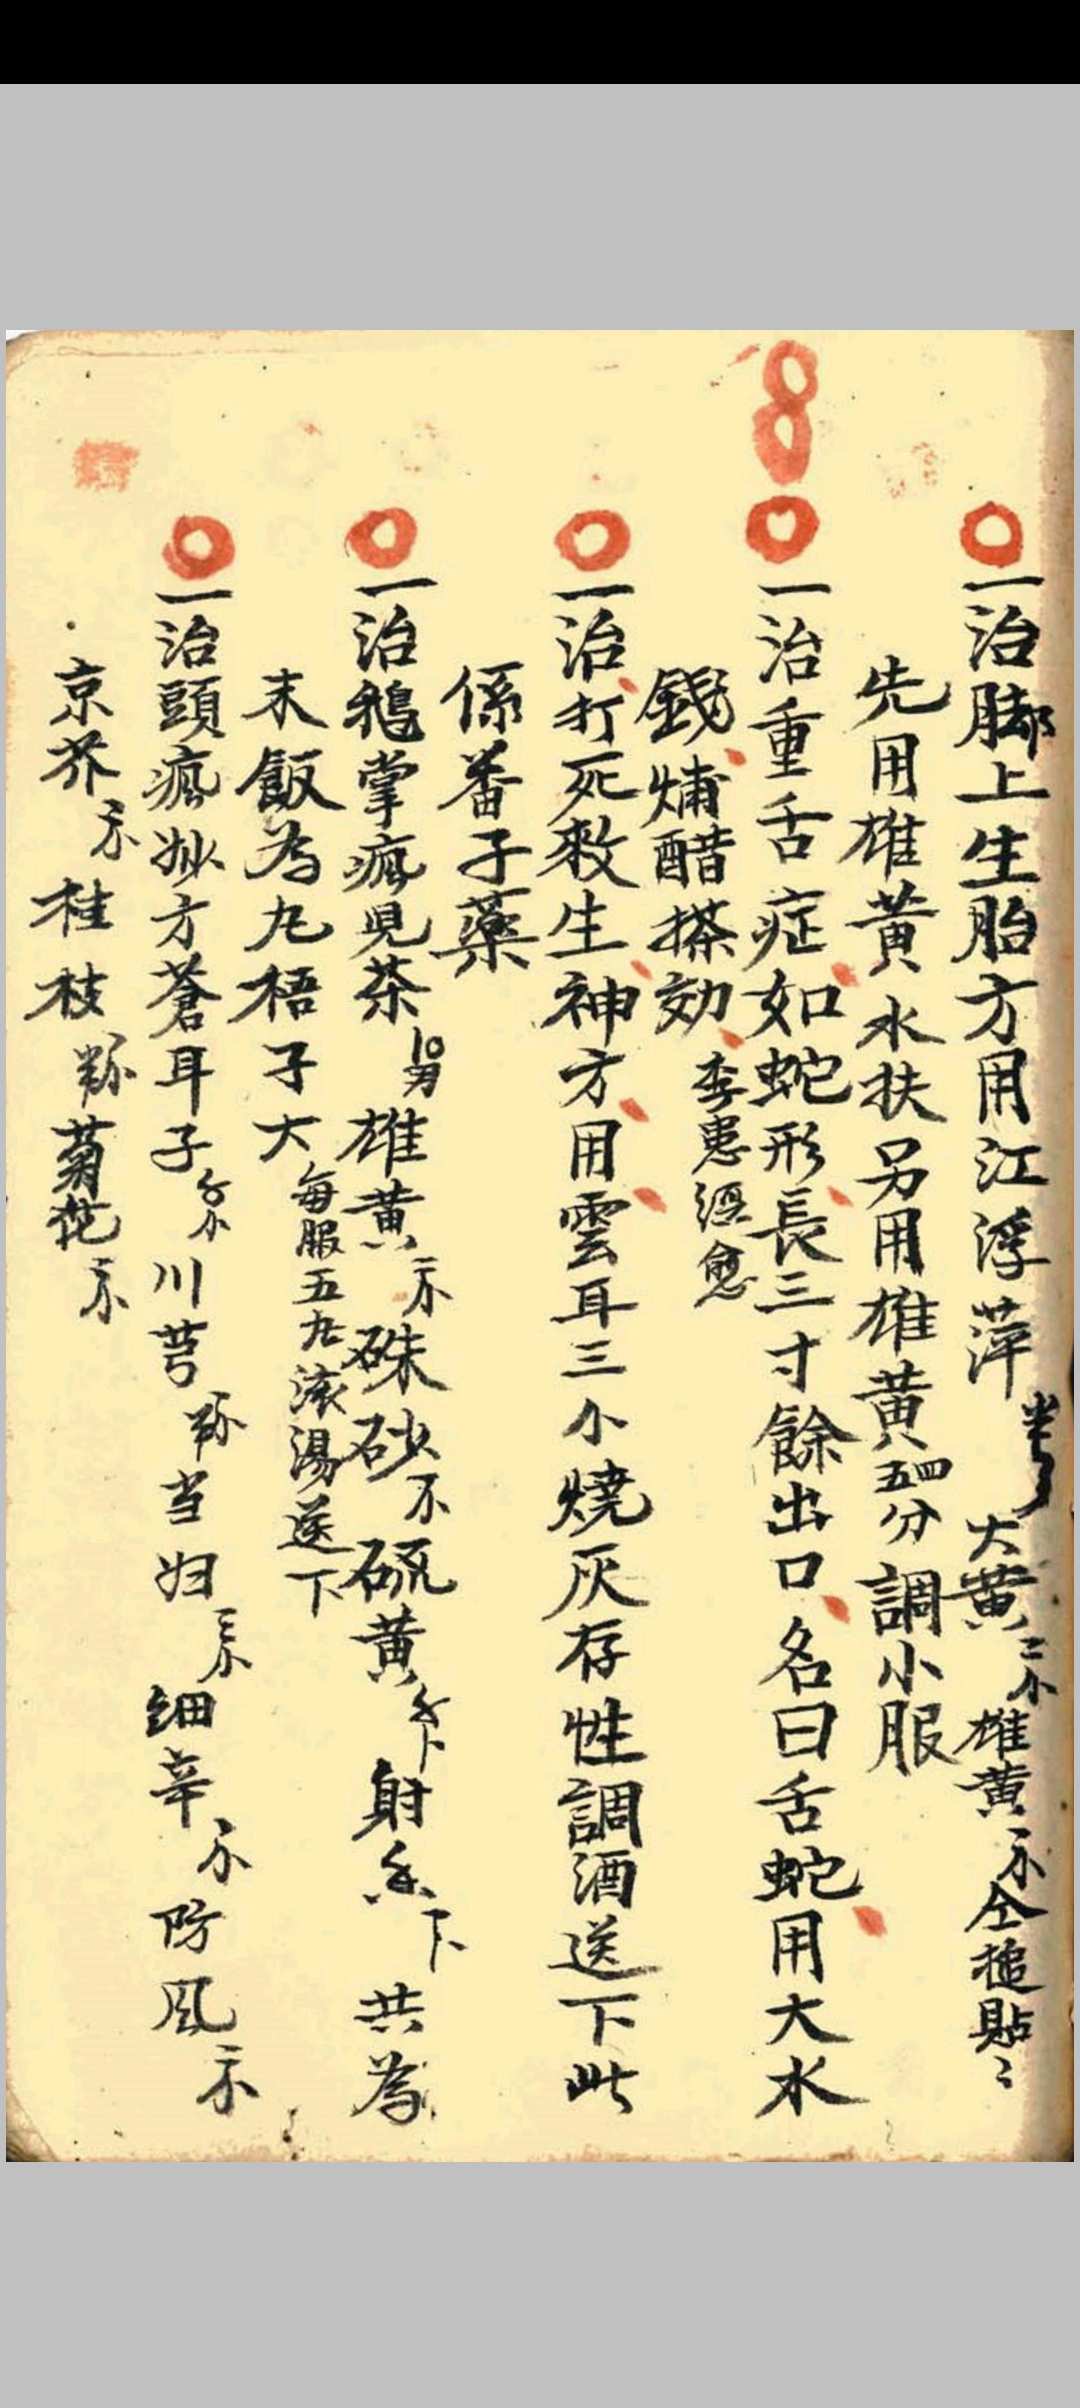 一治脚上生胎方用江浮萍 大黄二小雄黄一小仝搥貼〻
先用雄黄水扶另用雄黄四五分調小服
一治重舌症如蛇形長三寸餘出口名曰舌蛇用大水
錢焫醋搽効 李患 愈
一治打死救生神方用雲耳三小燒灰存性調酒送下此
係番子藥
一治鵝掌瘋児茶 雄黄 硃砂 硫黄 射香 共為
末飯為丸梧子大 每服五九滚湯送下
一治頭瘋妙方蒼耳子 川芎 当归 细辛 防風
京芥 桂枝 菊花